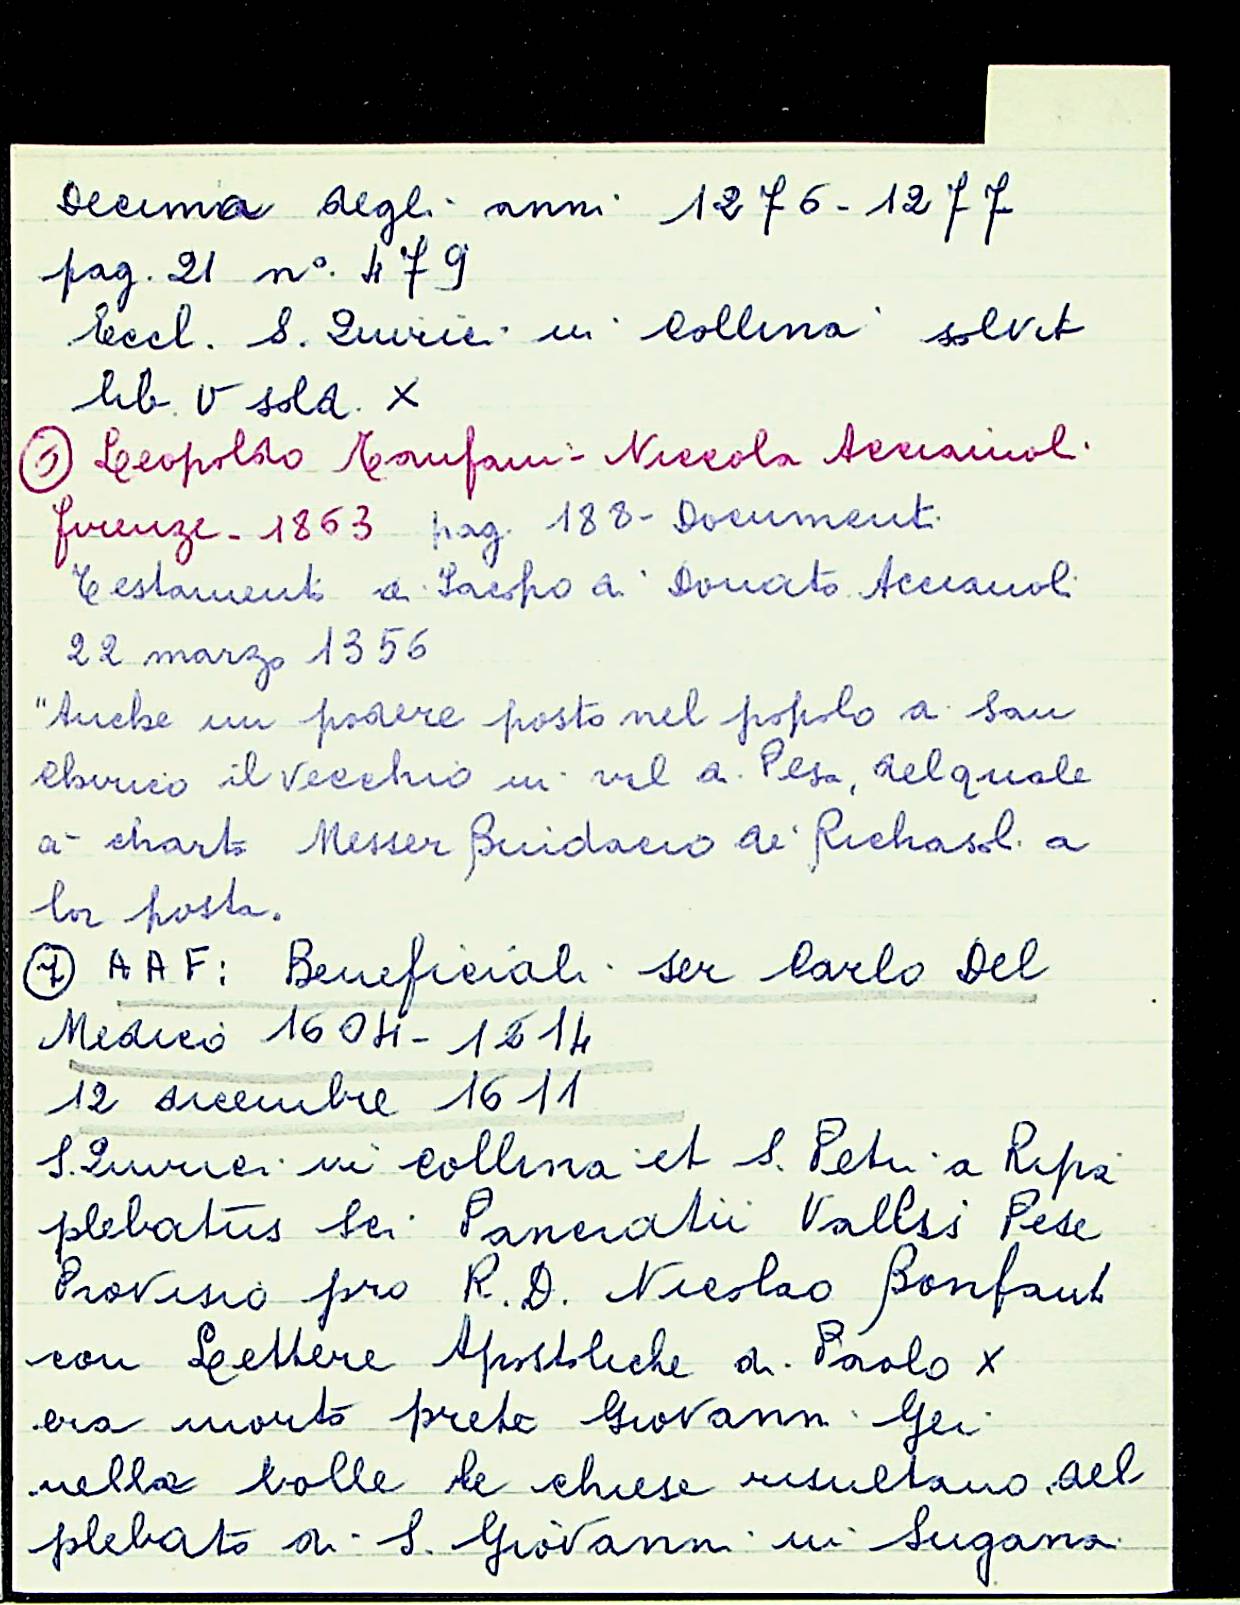 Decima degli anni 1276-1277
pag. 21 n°. 479
Eccl. S. Quirici in Collina solvit
lib. V sold. X
⑥ Leopoldo Tanfani - Niccola Acciaiuoli
Firenze - 1863 pag. 188 - Documenti
Testamento di Iacopo di Donato Acciauoli
22 marzo 1356
"Anche un podere posto nel popolo di San
Chirico il vecchio in val di Pesa, del quale
à charta Messer Guidaccio de' Richasoli a
lor posta.
⑦ AAF: Beneficiali ser Carlo Del
Medico 1604-1614
12 dicembre 1611
S. Quirici in Collina et S. Petri a Ripa
plebatus Sci Pancratii Vallsi Pese
Provisio pro R. D. Nicolao Bonfanti
con Lettere Apostoliche di Paolo X
era morto prete Giovanni Gei
nella bolle le chiese risultano del
plebato di S. Giovanni in Sugana